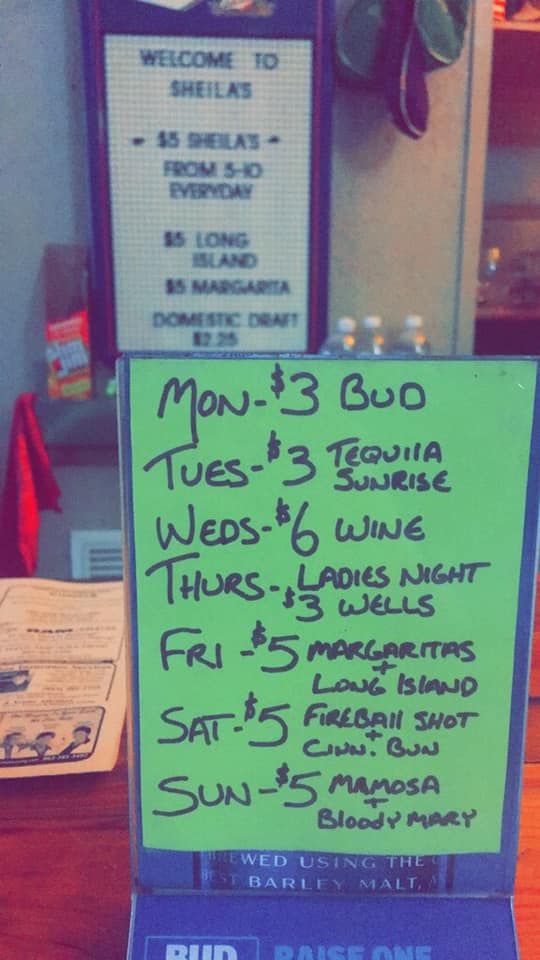 WELCOME TO
SHEILA'S
- $5 SHEILA'S -
FROM 5-10
EVERYDAY
$5 LONG
ISLAND
$5 MARGARITA
DOMESTIC DRAFT
$2.25
MON-$3 BUD
TUES-$3 TEQUILA
SUNRISE
WEDS-$6 WINE
THURS- LADIES NIGHT
$3 WELLS
FRI-$5 MARGARITAS
+
LONG ISLAND
SAT-$5 FIREBALL SHOT
+
CINN. BUN
SUN-$5 MAMOSA
+
BLOODY MARY
BREWED USING THE
BEST BARLEY MALT,
BUD RAISE ONE